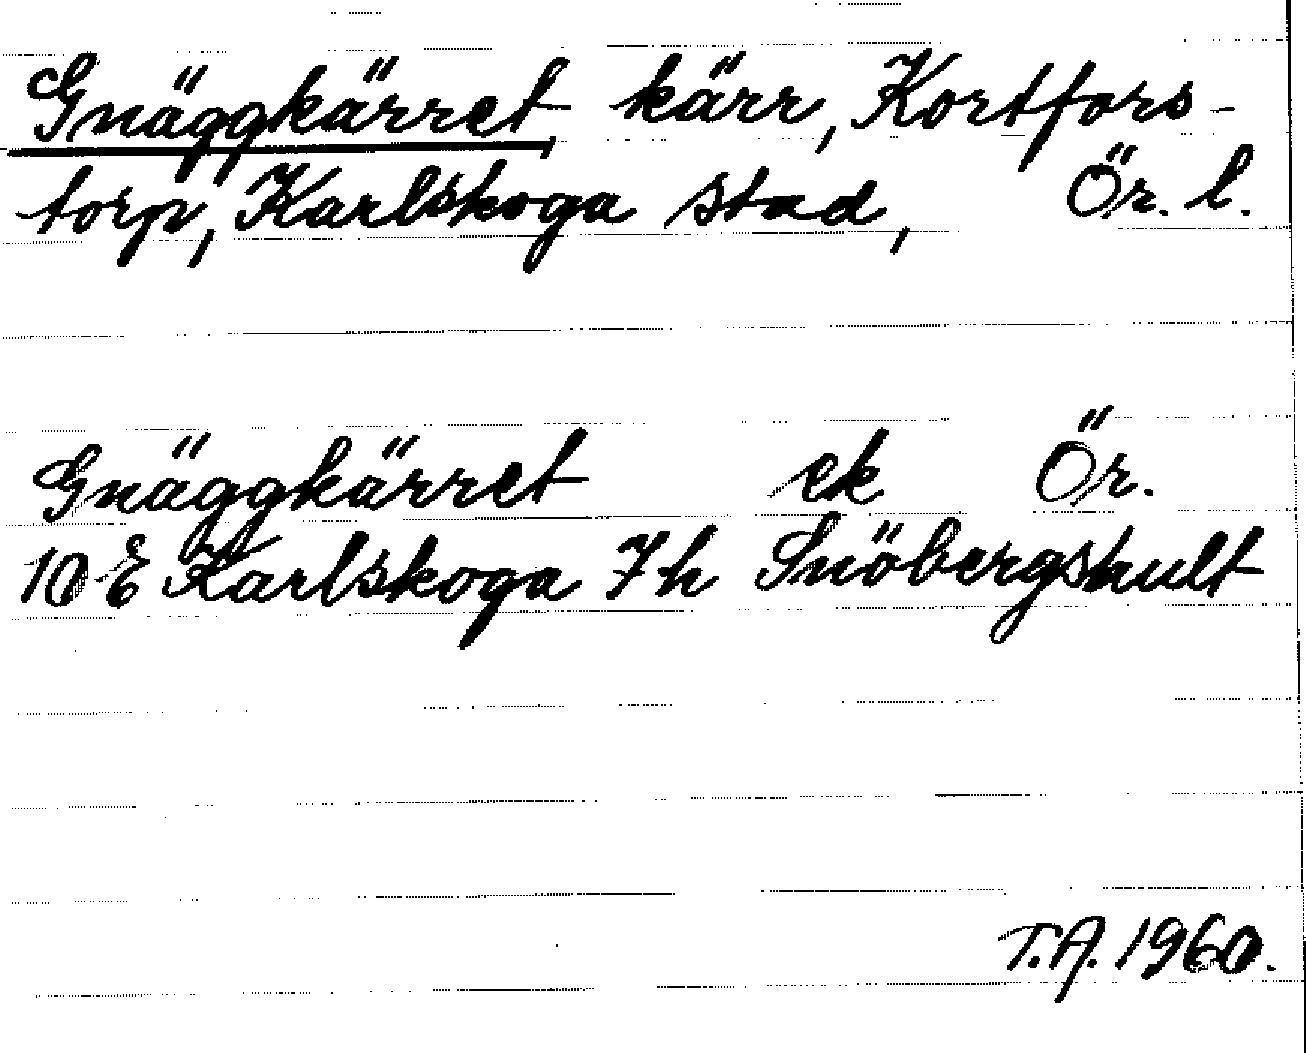 Gnäggkärret, kärr, Kortfors-
torp, Karlskoga stad, Ör. l.
Gnäggkärret ek Ör.
10 E Karlskoga 7h Snöbergshult
T.A. 1960.